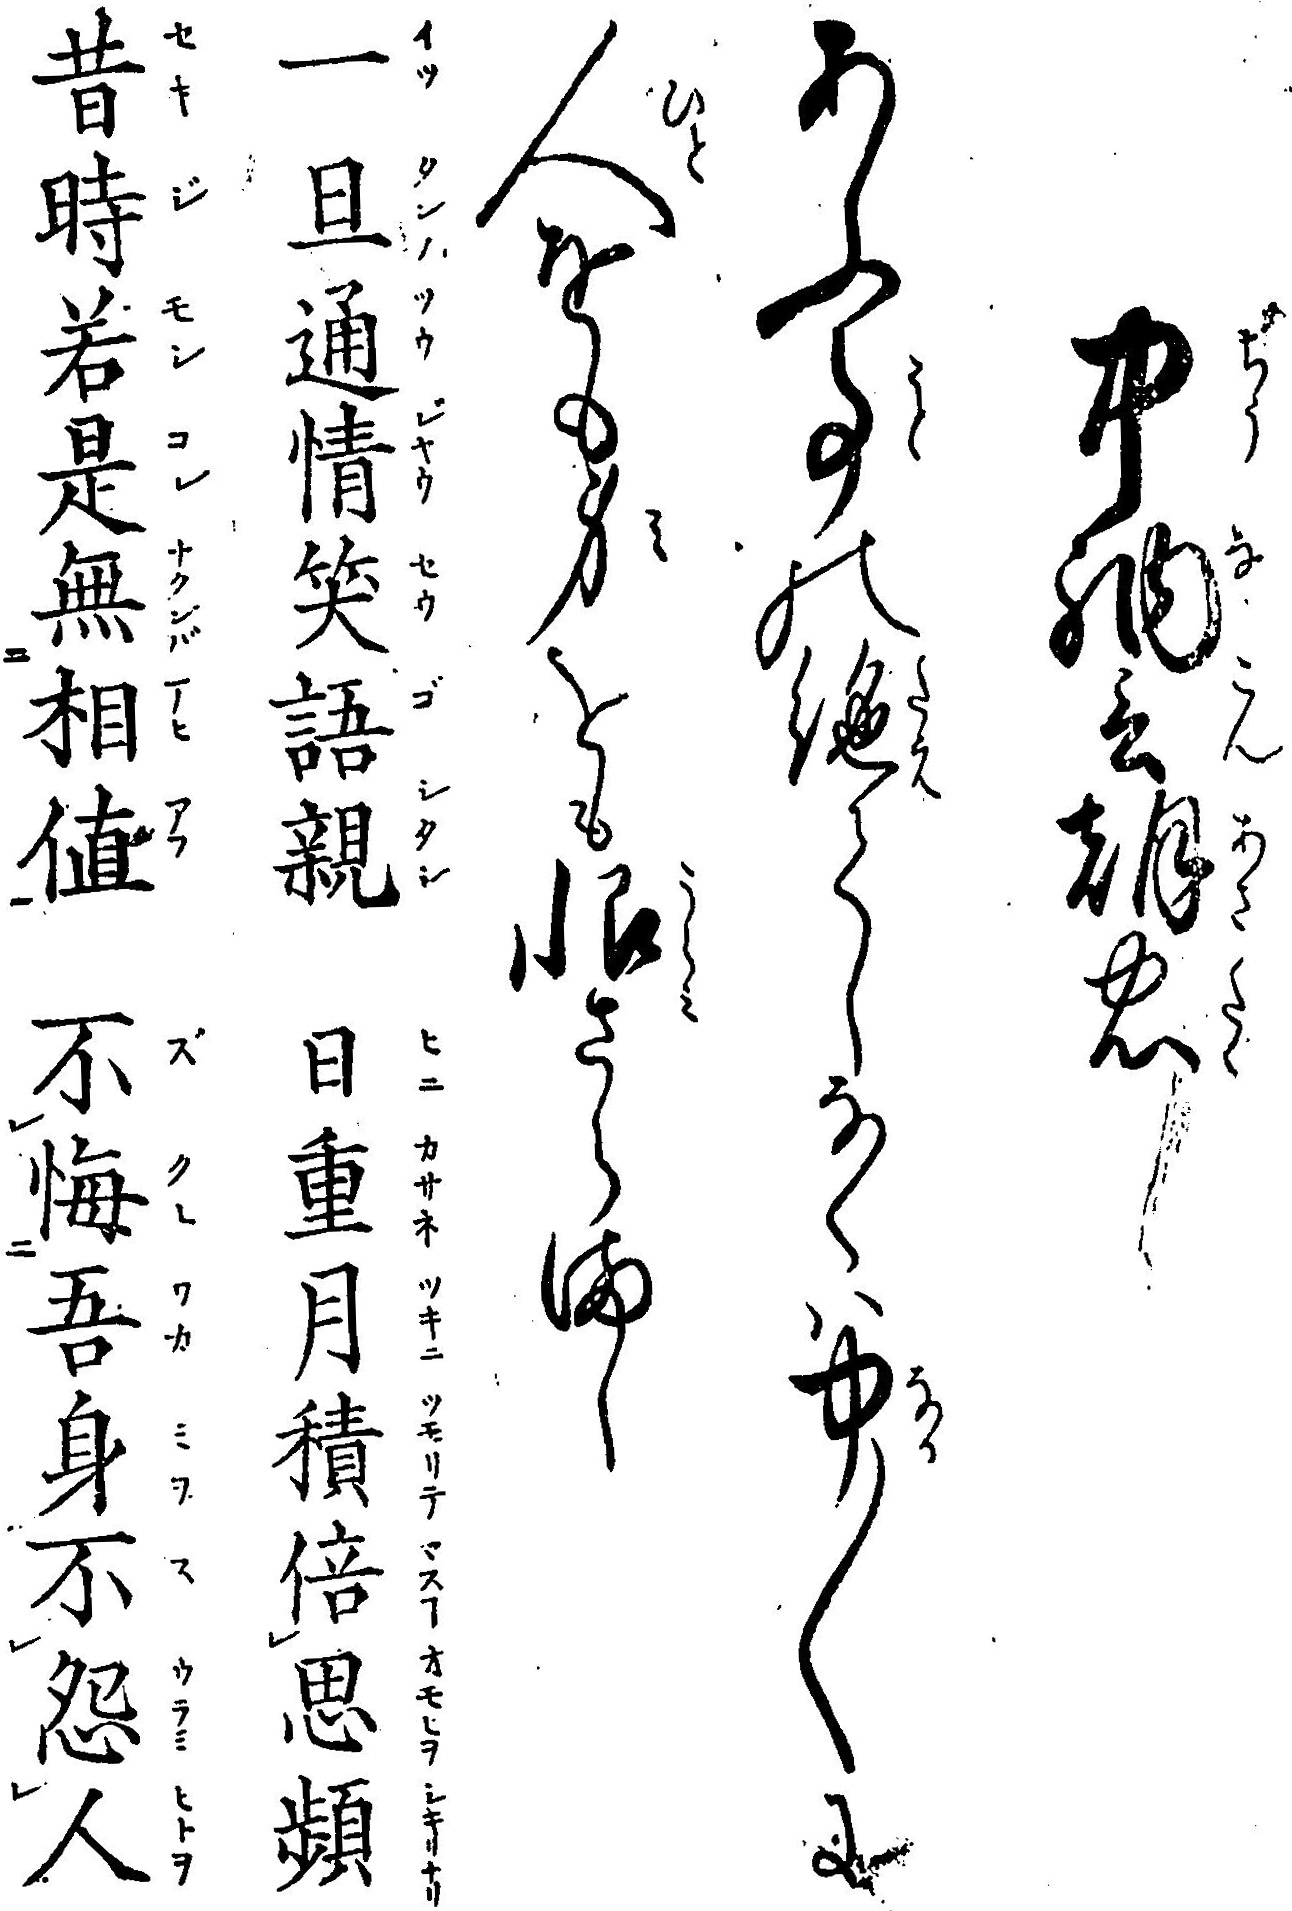 中納言朝忠
あふ事の絶てしなくハ中〳〵に
人をも身をも恨さらまし
一旦通情笑語親 日重月積倍思頻
昔時若是無相値 不悔吾身不怨人